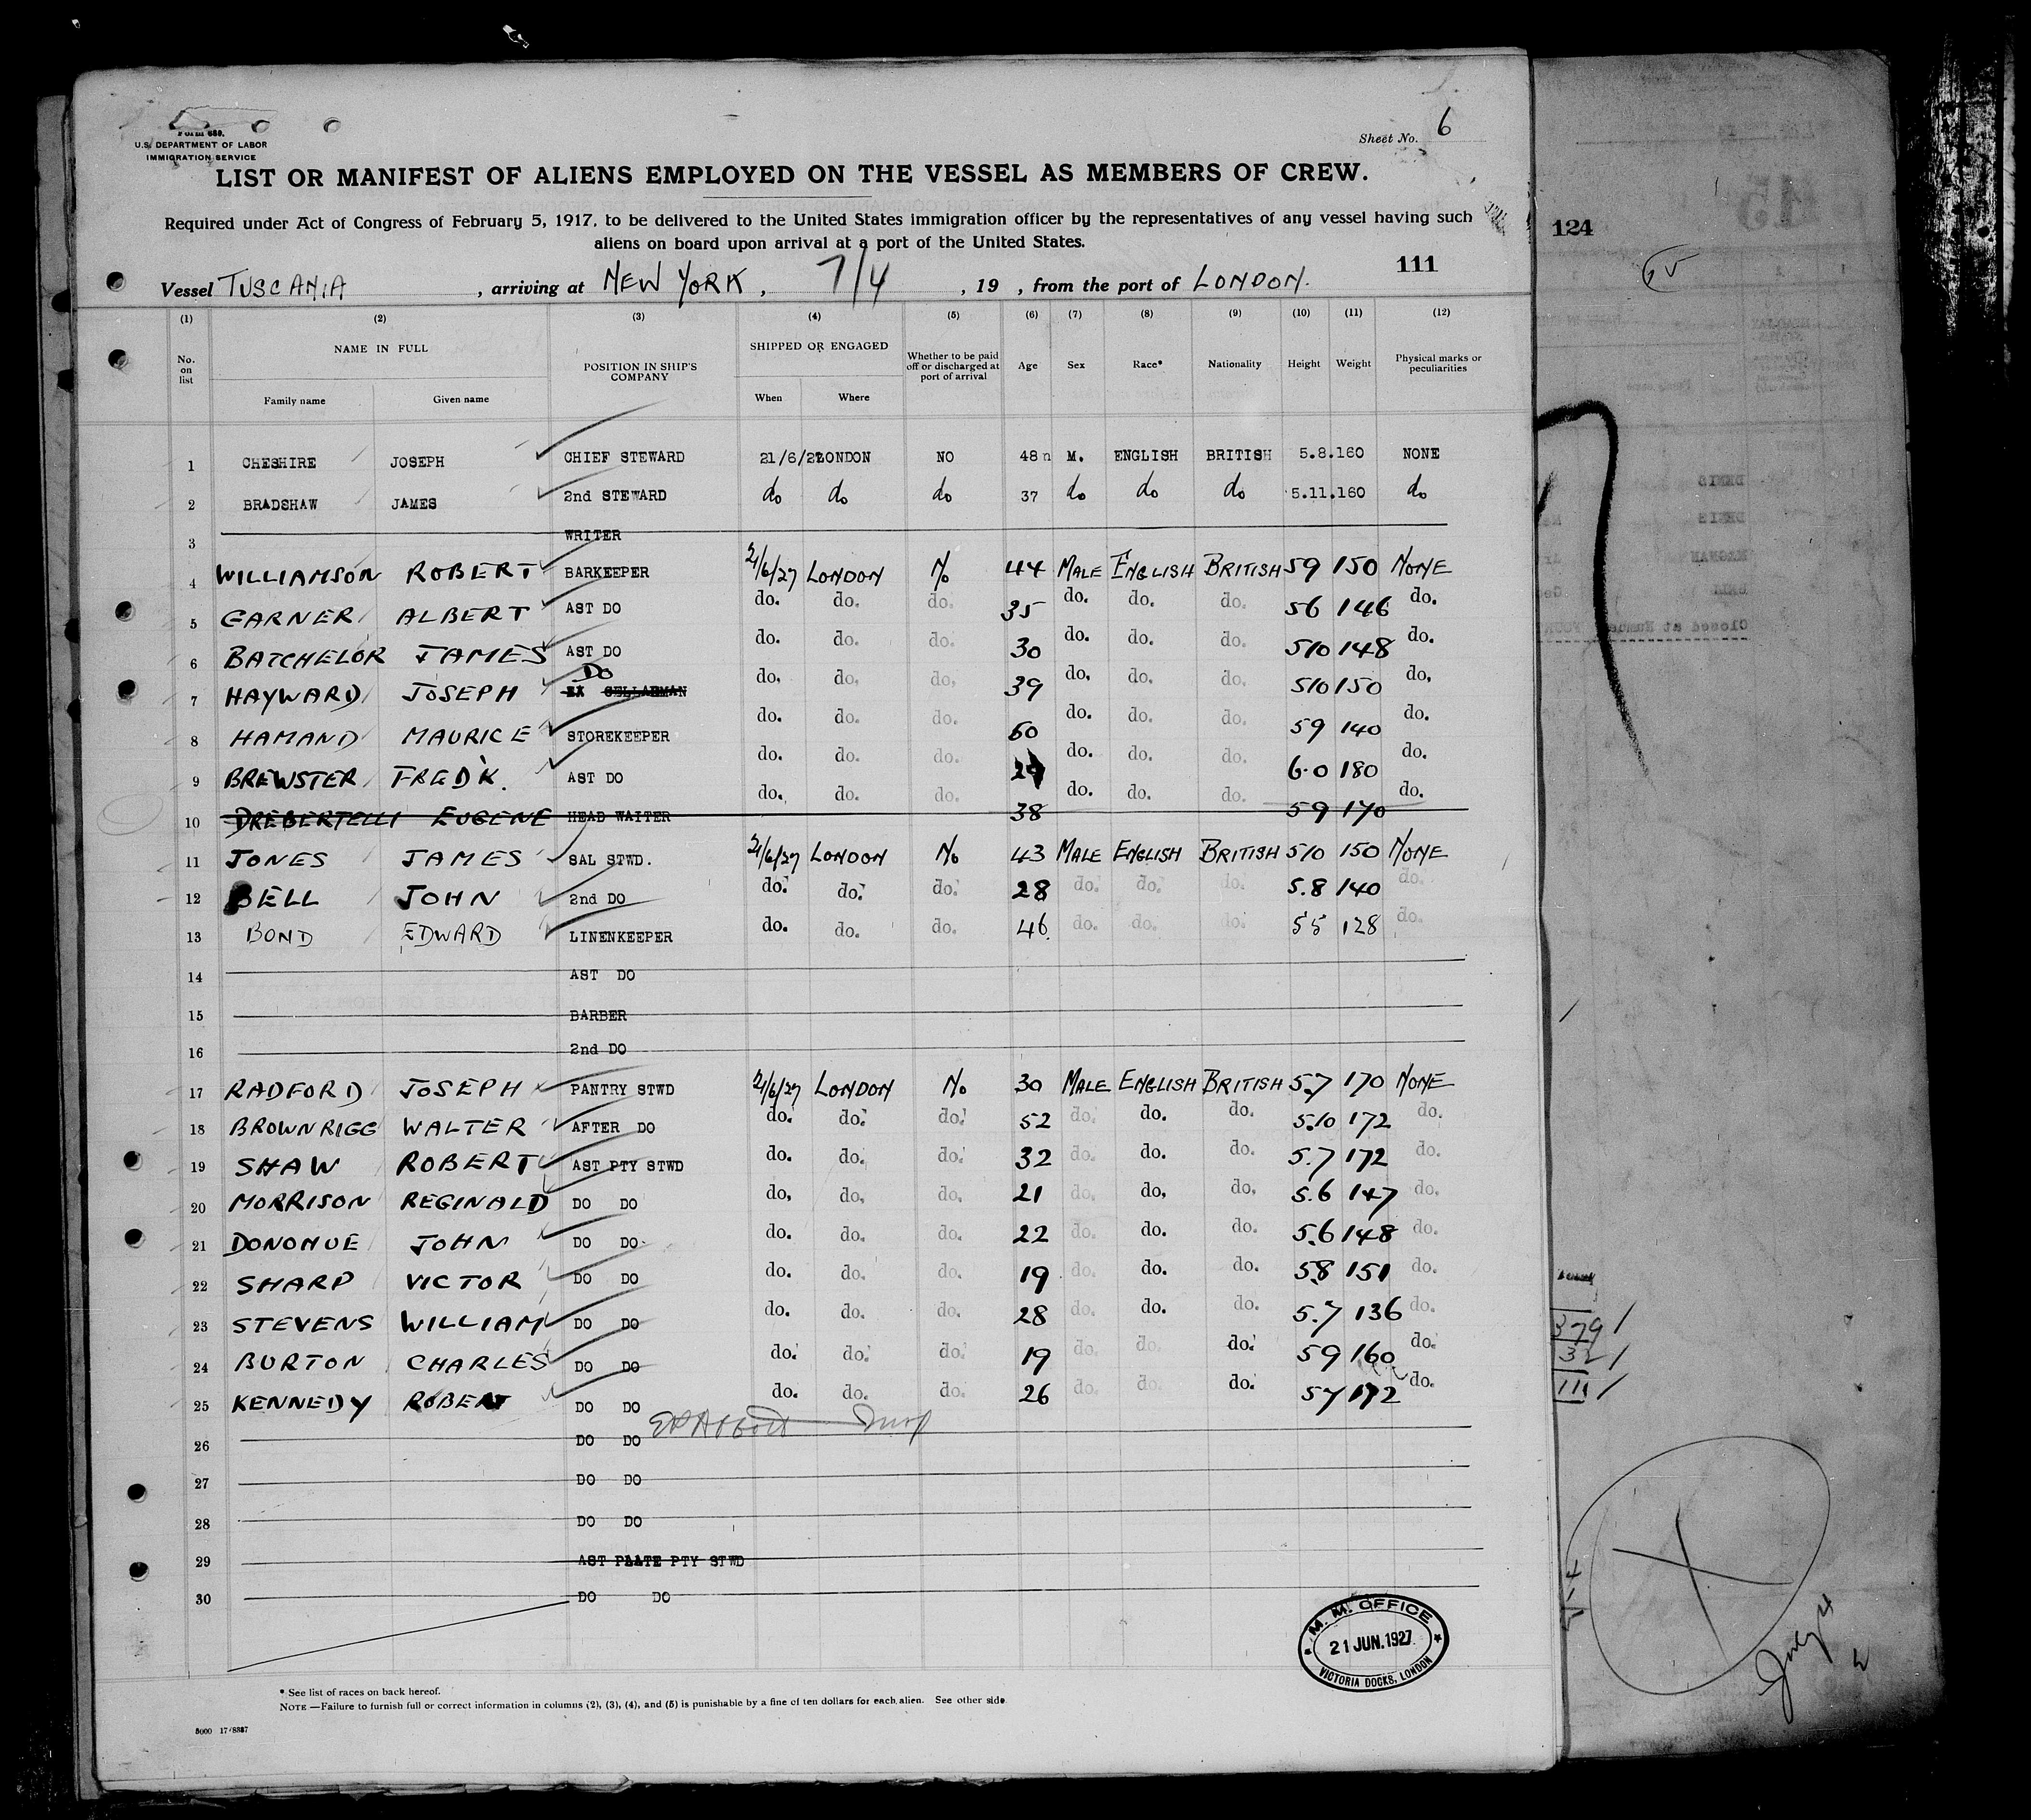 Form 689.
U.S. DEPARTMENT OF LABOR
IMMIGRATION SERVICE
Sheet No. 6
LIST OR MANIFEST OF ALIENS EMPLOYED ON THE VESSEL AS MEMBERS OF CREW.
Required under Act of Congress of February 5, 1917, to be delivered to the United States immigration officer by the representatives of any vessel having such
aliens on board upon arrival at a port of the United States.
111
Vessel TUSCANIA, arriving at NEW YORK, 7/4, 19 , from the port of LONDON.
(1) (2) (3) (4) (5) (6) (7) (8) (9) (10) (11) (12)
No. on list NAME IN FULL POSITION IN SHIP'S COMPANY SHIPPED OR ENGAGED Whether to be paid off or discharged at port of arrival Age Sex Race* Nationality Height Weight Physical marks or peculiarities
Family name Given name When Where
1 CHESHIRE JOSEPH CHIEF STEWARD 21/6/27 LONDON NO 48 M. ENGLISH BRITISH 5.8. 160 NONE
2 BRADSHAW JAMES 2nd STEWARD do do do 37 do do do 5.11. 160 do
3 WRITER
4 WILLIAMSON ROBERT BARKEEPER 21/6/27 LONDON No 44 MALE ENGLISH BRITISH 59 150 NONE
5 GARNER ALBERT AST DO do. do. do. 35 do. do. do. 56 146 do.
6 BATCHELOR JAMES AST DO do. do. do. 30 do. do. do. 510 148 do.
7 HAYWARD JOSEPH DO EX CELLARMAN do. do. do. 39 do. do. do. 510 150 do.
8 HAMAND MAURICE STOREKEEPER do. do. do. 60 do. do. do. 59 140 do.
9 BREWSTER FREDK. AST DO do. do. do. 29 do. do. do. 6.0 180 do.
10 DREBERTELLI EUGENE HEAD WAITER do. do. do. 38 do. do. do. 59 170 do.
11 JONES JAMES SAL STWD. 21/6/27 LONDON No 43 MALE ENGLISH BRITISH 510 150 NONE
12 BELL JOHN 2nd DO do. do. do. 28 do. do. do. 5.8 140 do.
13 BOND EDWARD LINENKEEPER do. do. do. 46 do. do. do. 55 128 do.
14 AST DO
15 BARBER
16 2nd DO
17 RADFORD JOSEPH PANTRY STWD 21/6/27 LONDON No 30 MALE ENGLISH BRITISH 5.7 170 NONE
18 BROWNRIGG WALTER AFTER DO do. do. do. 52 do. do. do. 5.10 172 do.
19 SHAW ROBERT AST PTY STWD do. do. do. 32 do. do. do. 5.7 172 do.
20 MORRISON REGINALD DO DO do. do. do. 21 do. do. do. 5.6 147 do.
21 DONOHUE JOHN DO DO do. do. do. 22 do. do. do. 5.6 148 do.
22 SHARP VICTOR DO DO do. do. do. 19 do. do. do. 5.8 151 do.
23 STEVENS WILLIAM DO DO do. do. do. 28 do. do. do. 5.7 136 do.
24 BURTON CHARLES DO DO do. do. do. 19 do. do. do. 59 160 do.
25 KENNEDY ROBERT DO DO do. do. do. 26 do. do. do. 57 172 do.
26 DO DO
27 DO DO
28 DO DO
29 AST PLATE PTY STWD
30 DO DO
M. M. OFFICE
21 JUN. 1927
VICTORIA DOCKS, LONDON
* See list of races on back hereof.
NOTE.—Failure to furnish full or correct information in columns (2), (3), (4), and (5) is punishable by a fine of ten dollars for each alien. See other side.
124
379
321
111
July 4